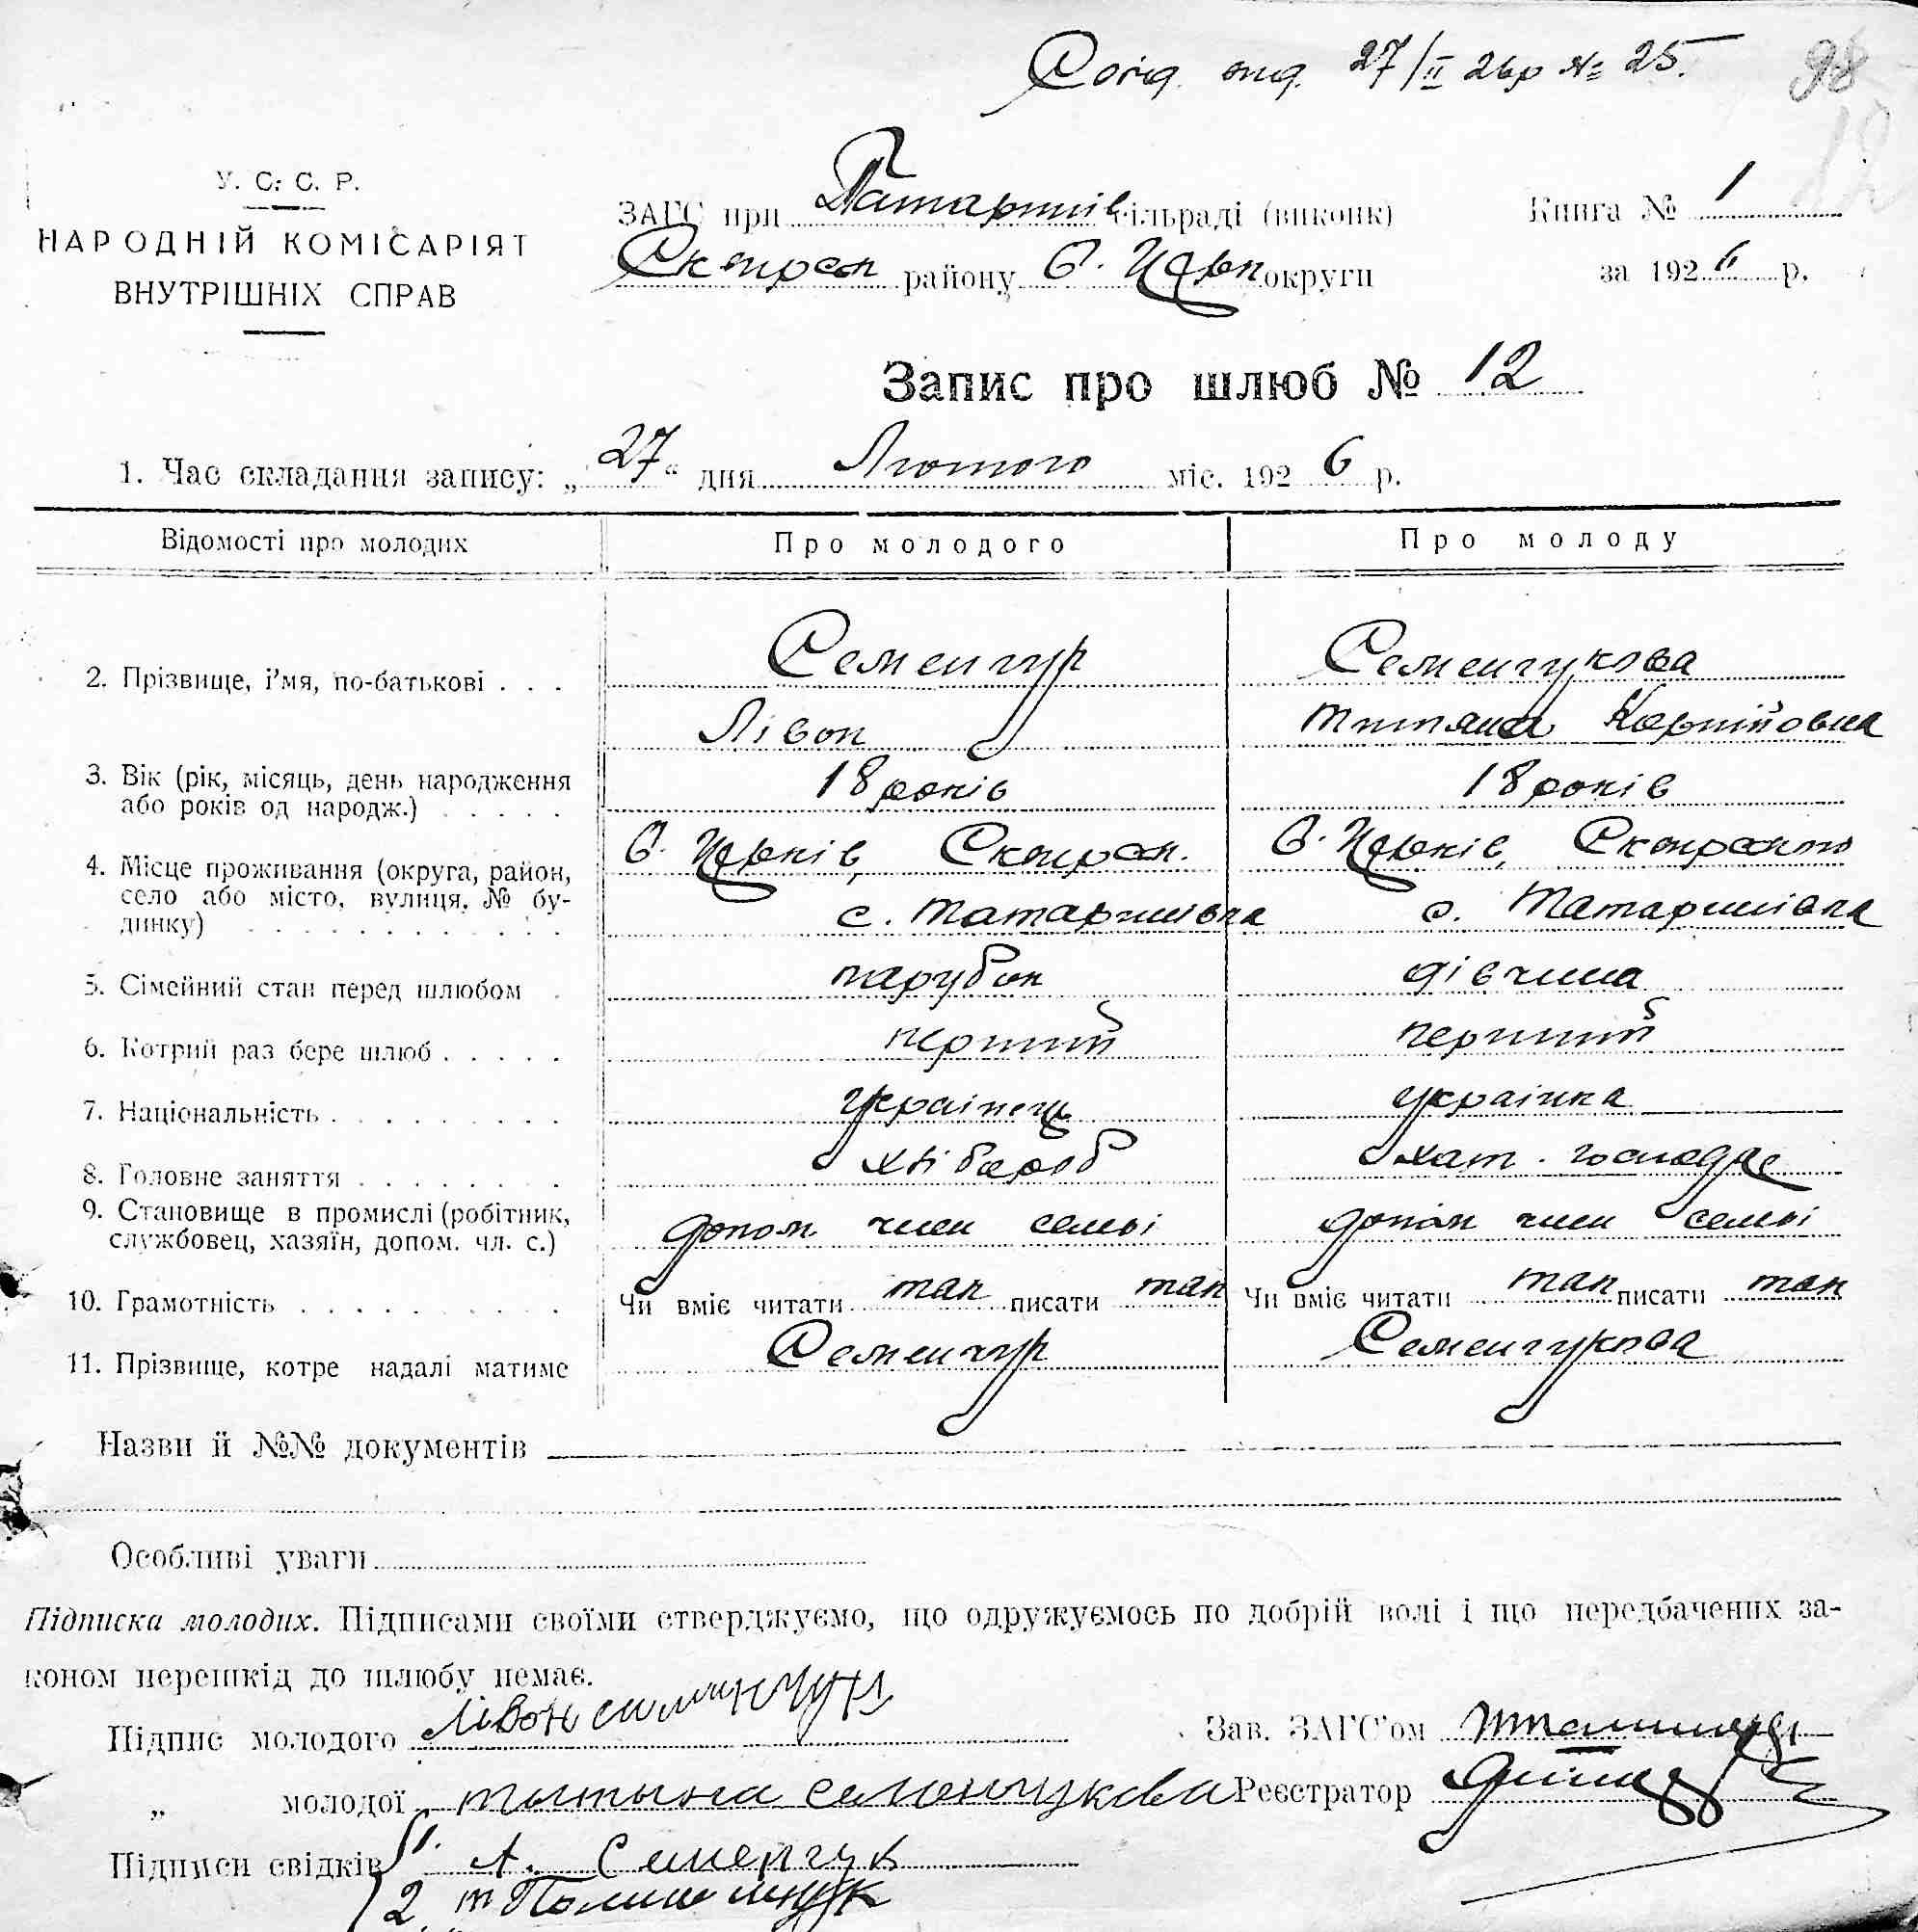 Посід. вид. 27/II 26р № 25.
98
12
У. С. С. Р.
НАРОДНІЙ КОМІСАРІЯТ
ВНУТРІШНІХ СПРАВ
ЗАГС при Татаршів сільраді (виконк)
Сквирськ району Б. Церк округи
Книга № 1
за 1926 р.
Запис про шлюб № 12
1. Час складання запису: „27“ дня Лютого міс. 1926 р.
Відомості про молодих Про молодого Про молоду
2. Прізвище, і'мя, по-батькові . . . Семенчук Семенчукова
Лівон Титяна Карпійовна
3. Вік (рік, місяць, день народження або років од народж.) . . . . . 18 років 18 років
4. Місце проживання (округа, район, село або місто, вулиця, № будинку) . . . . . . . . . . . . Б. Церків, Сквирськ. Б. Церків,
с. Татаршівка с. Татаршівка
5. Сімейний стан перед шлюбом . парубок дівчина
6. Котрий раз бере шлюб . . . . . перший перший
7. Національність . . . . . . . . . українець українка
8. Головне заняття . . . . . . . . хлібороб хат. господар
9. Становище в промислі (робітник, службовец, хазяїн, допом. чл. с.) допом член семьі допом член семьі
10. Грамотність . . . . . . . . . . Чи вміє читати так писати так Чи вміє читати так писати так
11. Прізвище, котре надалі матиме Семенчук Семенчукова
Назви й №№ документів
Особливі уваги
Підписка молодих. Підписами своїми стверджуємо, що одружуємось по добрій волі і що передбачених за-
коном перешкід до шлюбу немає.
Підпис молодого Лівон симинчук Зав. ЗАГС'ом
„ молодої тытьяна семончукова Реєстратор
Підписи свідків 1. А. Семенчук
2. т Полишчук